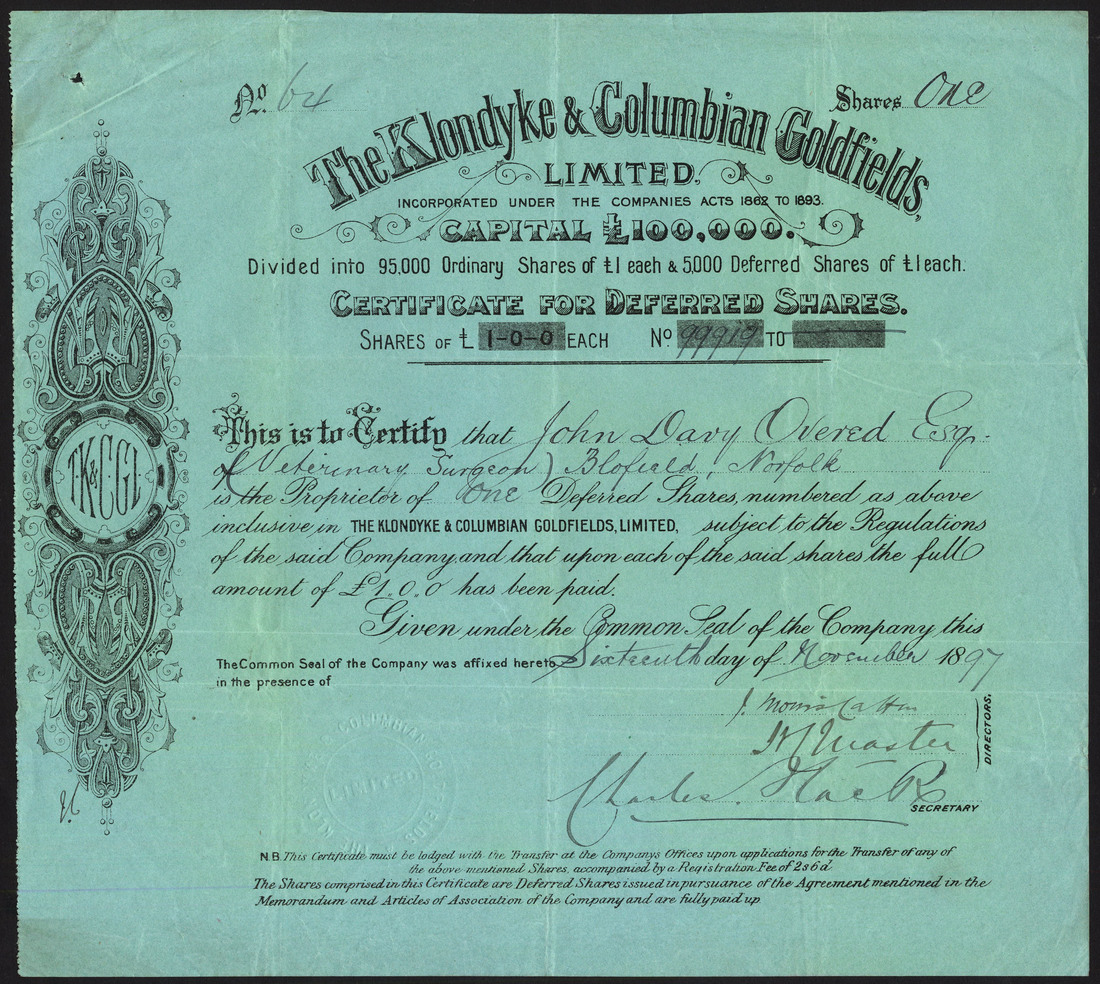 No. 64
Shares One
The Klondyke & Columbian Goldfields,
LIMITED.
INCORPORATED UNDER THE COMPANIES ACTS 1862 TO 1893.
CAPITAL £100,000.
Divided into 95,000 Ordinary Shares of £1 each & 5,000 Deferred Shares of £1 each.
CERTIFICATE FOR DEFERRED SHARES.
SHARES OF £ 1-0-0 EACH No. 99919 TO
This is to Certify that John Davy Overed Esq.
of (Veterinary Surgeon) Blofield, Norfolk
is the Proprietor of One Deferred Shares, numbered as above
inclusive in THE KLONDYKE & COLUMBIAN GOLDFIELDS, LIMITED, subject to the Regulations
of the said Company and that upon each of the said shares the full
amount of £1.0.0 has been paid.
Given under the Common Seal of the Company this
Sixteenth day of November 1897
The Common Seal of the Company was affixed hereto
in the presence of
T.K.&C.G.L
DIRECTORS.
Master
Charles
SECRETARY
LIMITED
N.B. This Certificate must be lodged with the Transfer at the Companys Offices upon applications for the Transfer of any of
the above mentioned Shares, accompanied by a Registration Fee of 2s 6d
The Shares comprised in this Certificate are Deferred Shares issued in pursuance of the Agreement mentioned in the
Memorandum and Articles of Association of the Company and are fully paid up